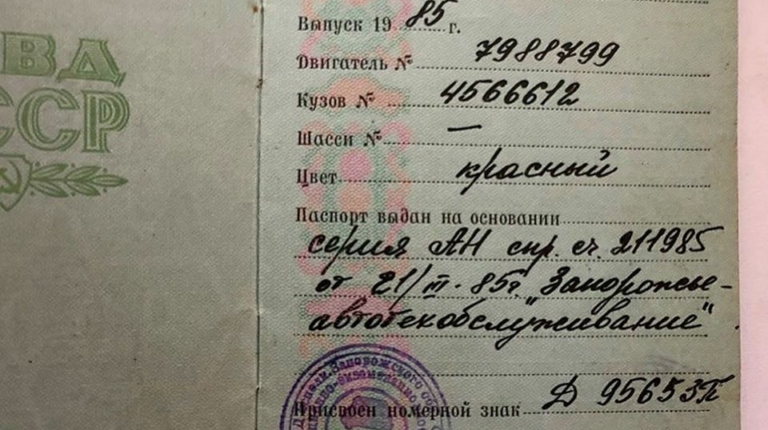 ВА
ССР
Выпуск 1985 г.
Двигатель № 7988799
Кузов № 4566612
Шасси № —
Цвет красный
Паспорт выдан на основании
серия АН спр. сч. 211985
от 21/III-85г "Запорожье-
автотехобслуживание"
Запорожского
Присвоен номерной знак Д 9565ЗП